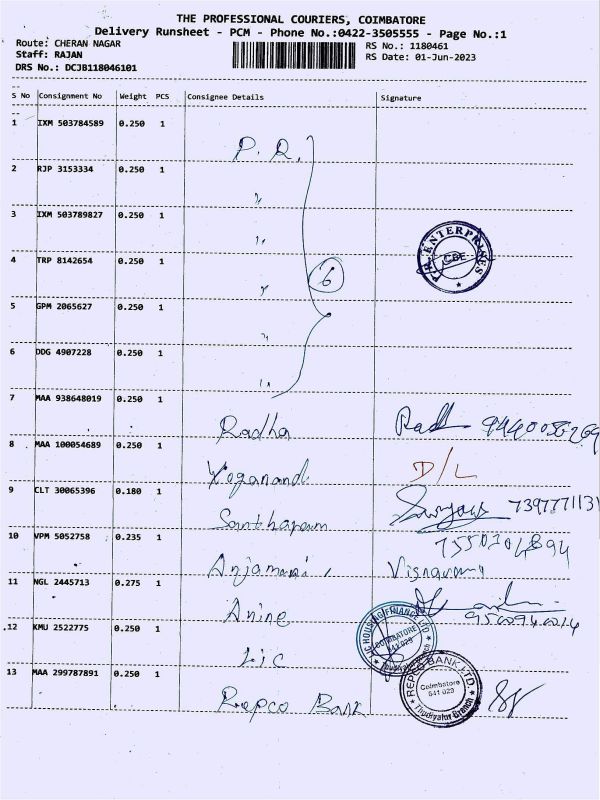 THE PROFESSIONAL COURIERS, COIMBATORE
Delivery Runsheet - PCM - Phone No.:0422-3505555 - Page No.:1
Route: CHERAN NAGAR
RS No.: 1180461
Staff: RAJAN
RS Date: 01-Jun-2023
DRS No.: DCJB118046101
S No Consignment No Weight PCS Consignee Details Signature
1 IXM 503784589 0.250 1
P. R.
2 RJP 3153334 0.250 1
"
3 IXM 503789827 0.250 1
"
4 TRP 8142654 0.250 1
"
6
ENTERPRISES
CBE
5 GPM 2065627 0.250 1
"
6 DDG 4907228 0.250 1
"
7 MAA 938648019 0.250 1
Radha
8 MAA 100054689 0.250 1
Yoganand
D/L
9 CLT 30065396 0.180 1
7397771131
10 VPM 5052758 0.235 1
11 NGL 2445713 0.275 1
Anine
12 KMU 2522775 0.250 1
Lic
HOUSING FINANCE LTD
COIMBATORE
641 029
13 MAA 299787891 0.250 1
Repco Bank
REPCO BANK LTD.
Coimbatore
641 029
Thudiyalur Branch